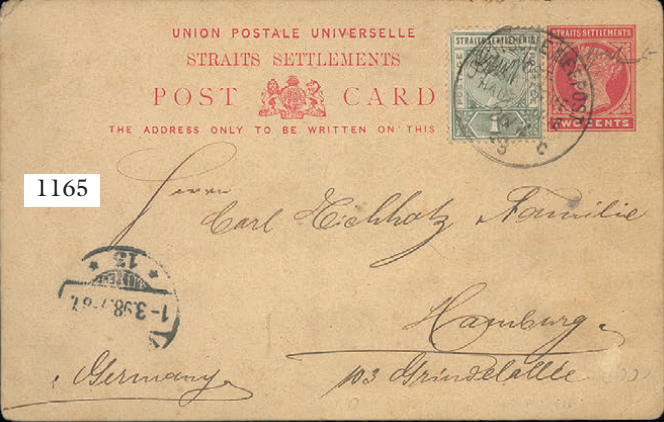 UNION POSTALE UNIVERSELLE
STRAITS SETTLEMENTS
POST CARD
THE ADDRESS ONLY TO BE WRITTEN ON THIS
STRAITS SETTLEMENTS
STRAITS SETTLEMENTS
TWO CENTS
1165
Herrn
Carl Eichholz Familie
Hamburg.
103 Grindelallée
Germany
13
1-3.98.7-8